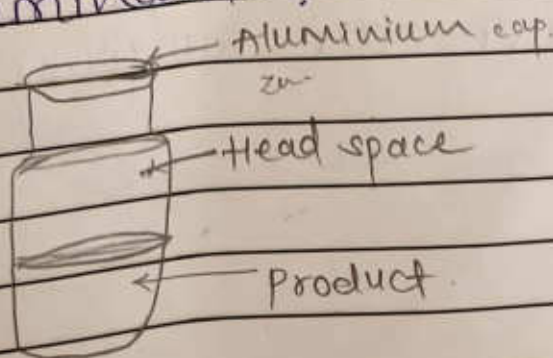 Aluminium cap.
Head space
Product.